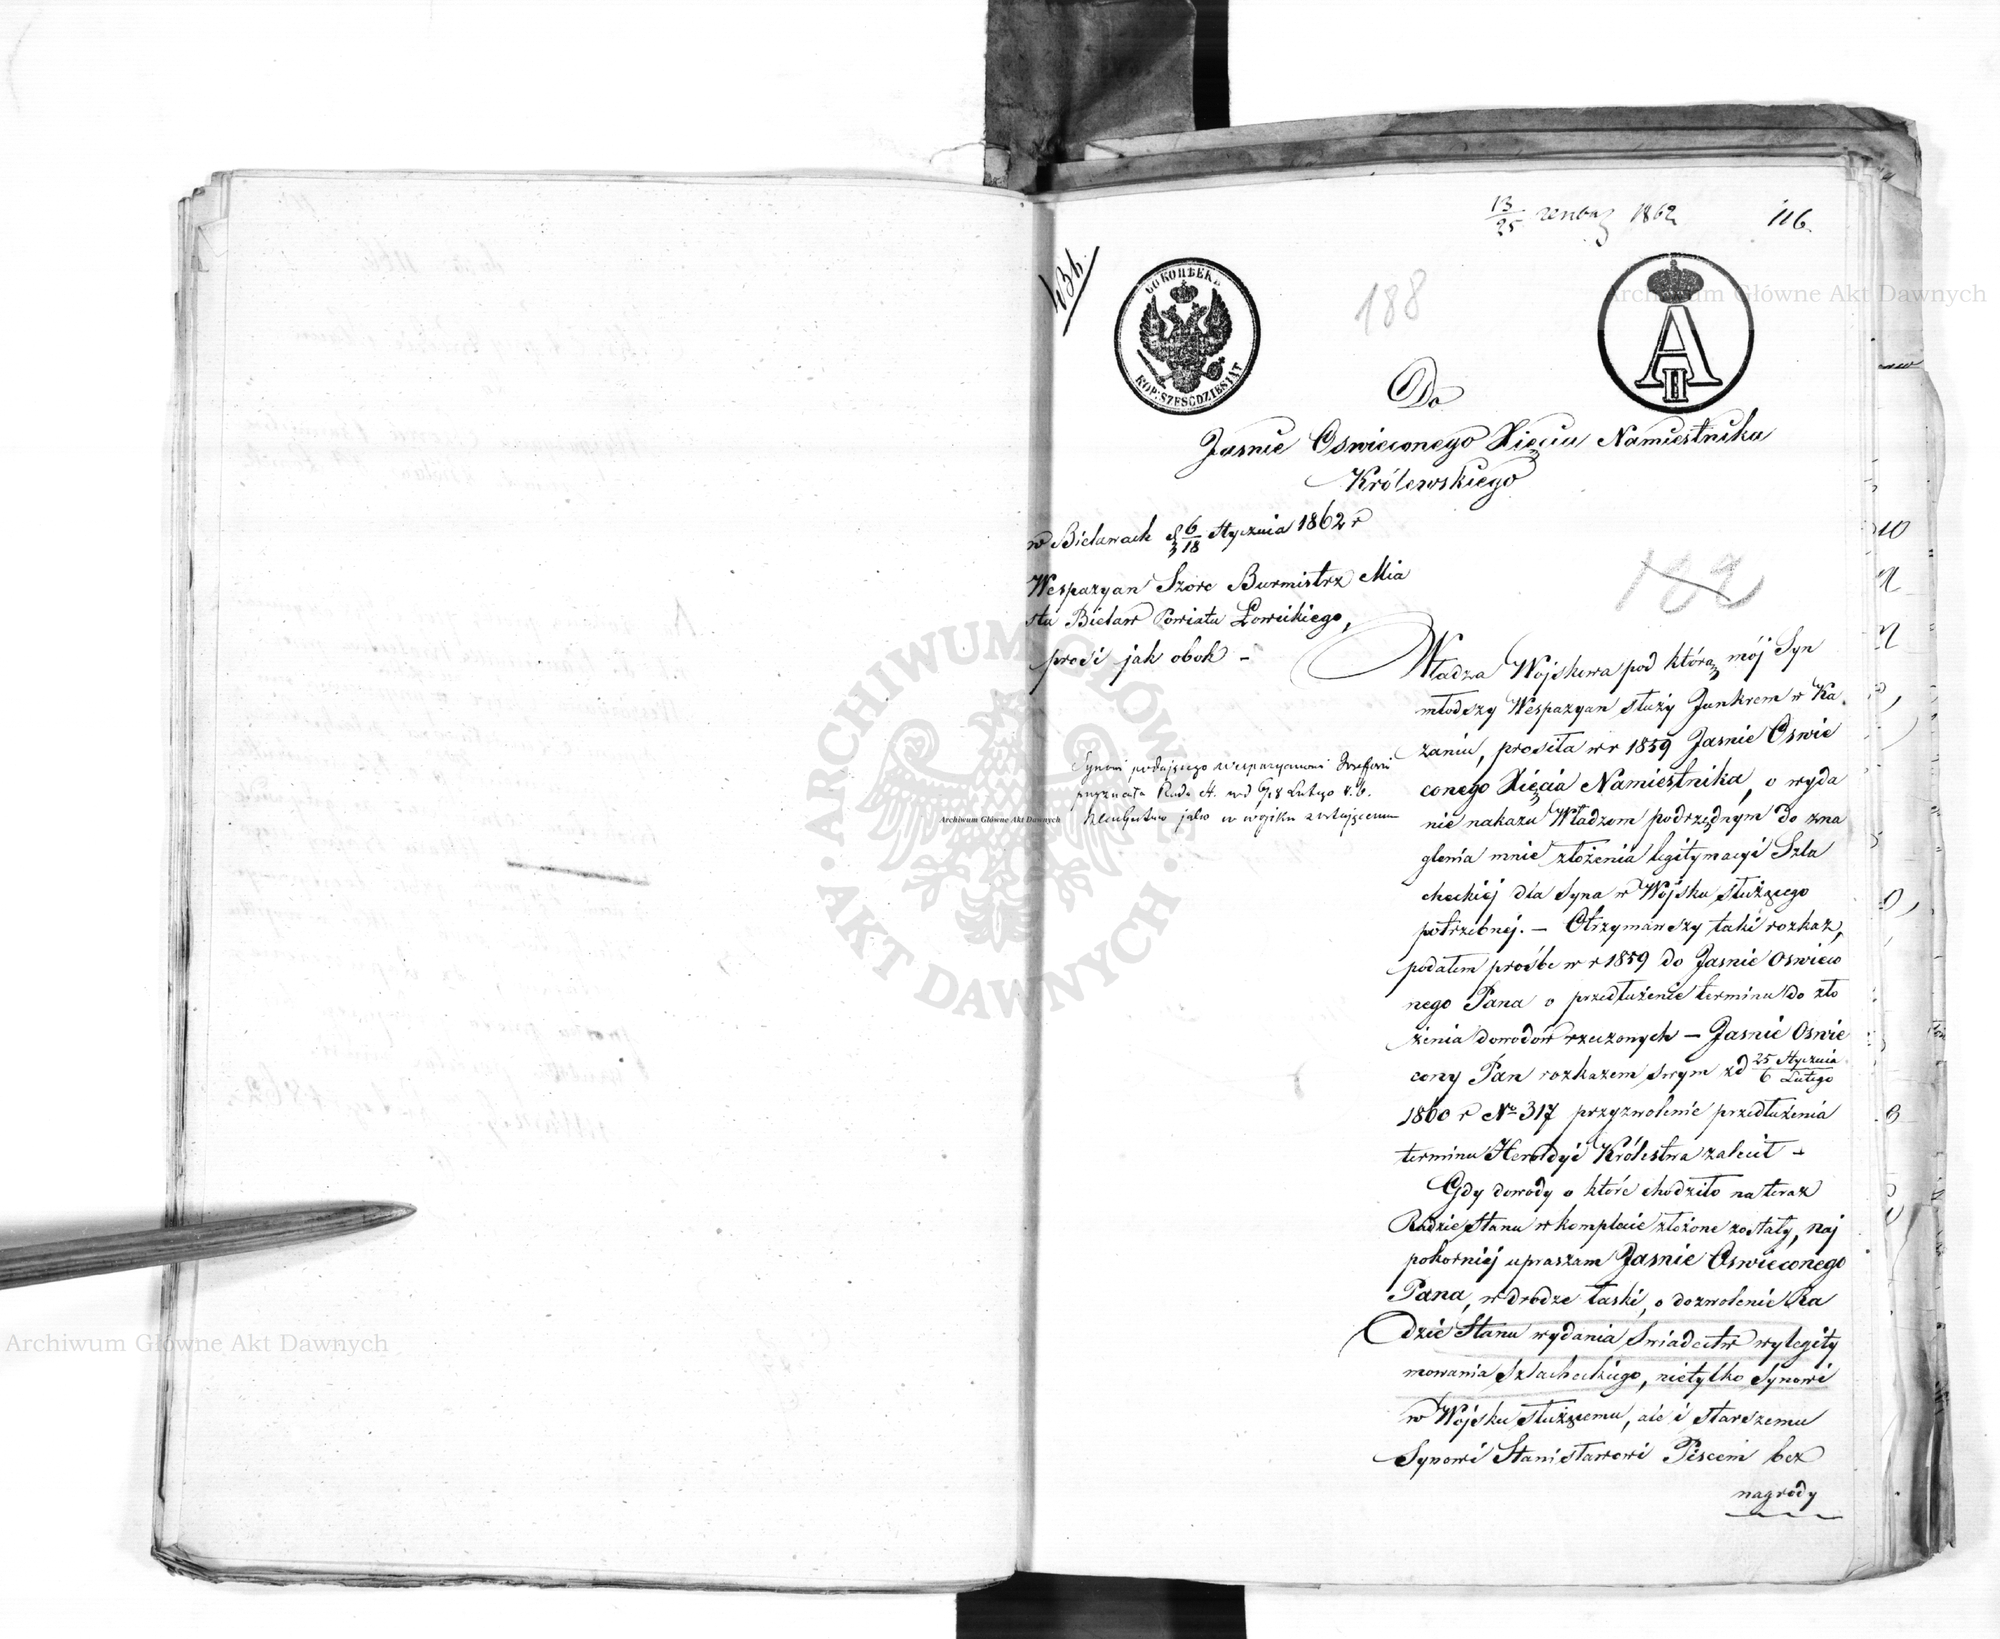 13/25 1862
116.
60 КОПѢЕКЪ
KOP: SZEŚĆDZIESIĄT
A II
188
Do
Jasnie Oswieconego Xięcia Namiestnika
Królewskiego
w Bielawach d 6/18 Stycznia 1862 r
Wespazyan Szorc Burmistrz Mia
sta Bielaw Powiatu Łowickiego,
prosi jak obok –
182
Władza Wojskowa pod którą mój Syn
młodszy Wespazyan służy Junkrem w Ka
zaniu, prosiła w r 1859 Jasnie Oswie
conego Xięcia Namiestnika, o wyda
nie nakazu Władzom podrzędnym do zna
glenia mnie złożenia legitymacyi Szla
checkiej dla Syna w Wojsku służącego
potrzebnej. – Otrzymawszy taki rozkaz,
podałem prośbe w r 1859 do Jasnie Oswieco
nego Pana o przedłużenie terminu do zło
żenia dowodów rzeczonych – Jasnie Oswie
cony Pan rozkazem swym zd 25 Stycznia/6 Lutego
1860 r No 317 przyzwolenie przedłużenia
terminu Heroldyi Królestwa zalecił –
Gdy dowody o które chodziło na teraz
Radzie Stanu w komplecie złożone zostały, naj
pokorniej upraszam Jasnie Oswieconego
Pana, w drodze łaski, o dozwolenie Ra
dzie Stanu wydania Swiadectw wylegity
mowania Szlacheckiego, nietylko Synowi
w Wojsku służącemu, ale i starszemu
Synowi Stanisławowi Piscem bez
nagrody
Synowi podającego Wespazyanowi
przyznała Rada St. Lutego r. b.
Szlachectwo jako w wojsku zostającemu
Archiwum Główne Akt Dawnych
Archiwum Główne Akt Dawnych
Archiwum Główne Akt Dawnych
ARCHIWUM GŁÓWNE · AKT DAWNYCH ·